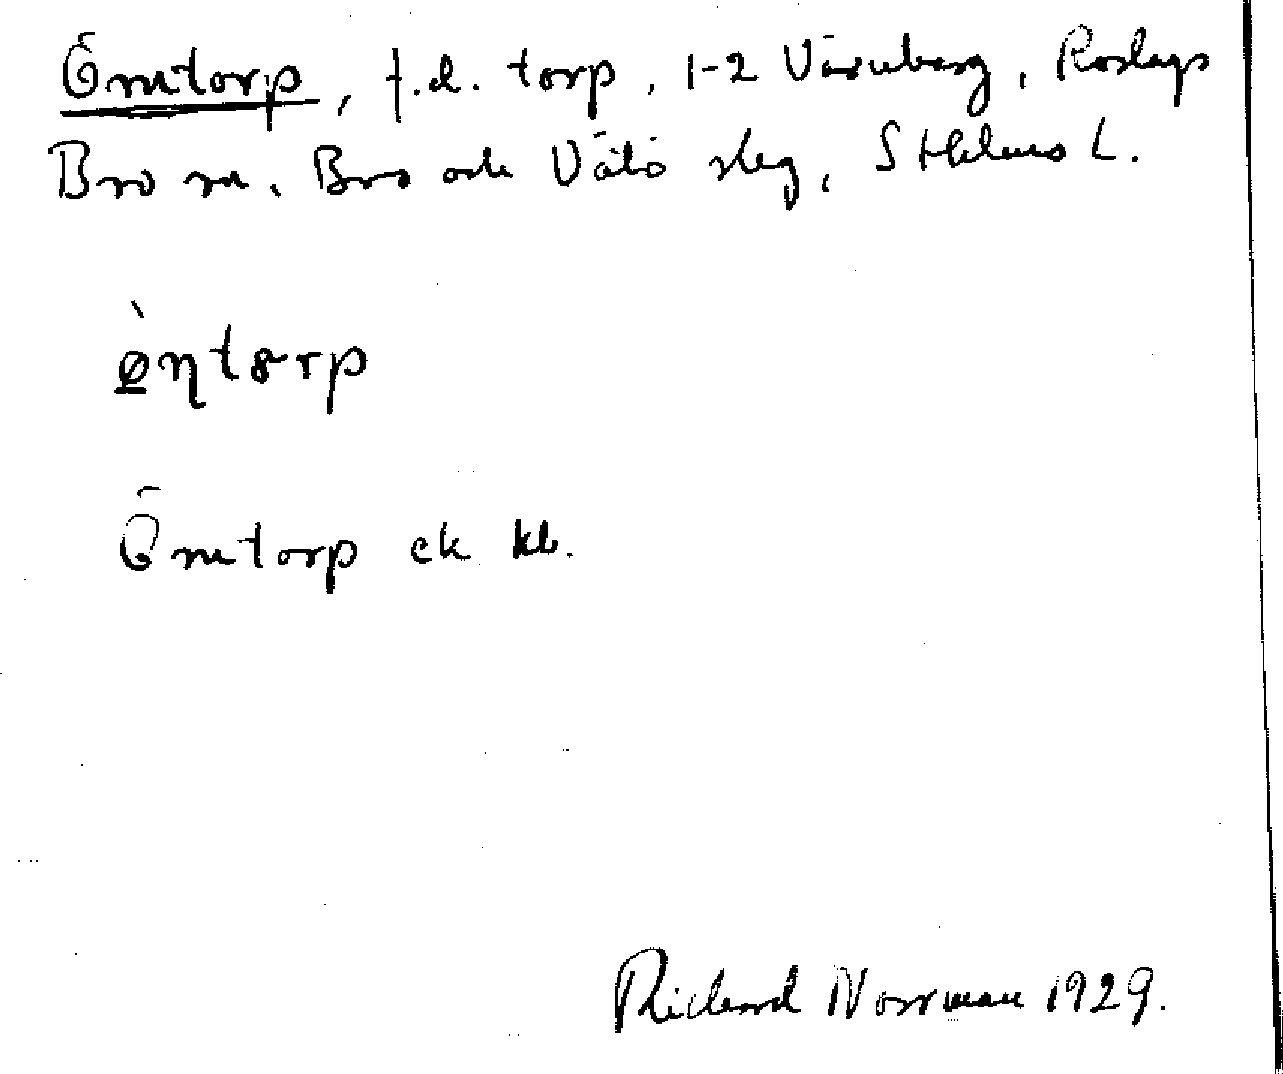 Ömtorp, f.d. torp, 1-2 Värnberg, Roslags
Bro sn. Bro och Vätö slag, Sthlms L.
Ömtorp ek kb.
Richard Norrman 1929.